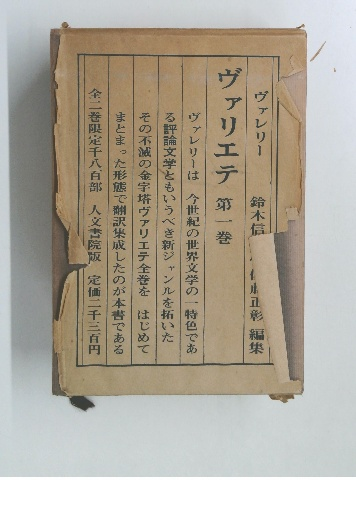 ヴァレリー 鈴木信 佐藤正彰 編集
ヴァリエテ 第一巻
ヴァレリーは 今世紀の世界文学の一特色であ
る評論文学ともいうべき新ジャンルを拓いた
その不滅の金字塔ヴァリエテ全巻を はじめて
まとまった形態で翻訳集成したのが本書である
全二巻限定千八百部 人文書院版 定価二千三百円